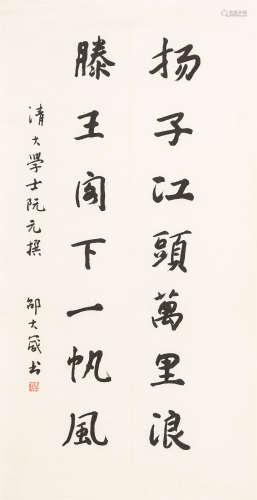 扬子江頭萬里浪
滕王阁下一帆風
清大學士阮元撰
邵大箴书